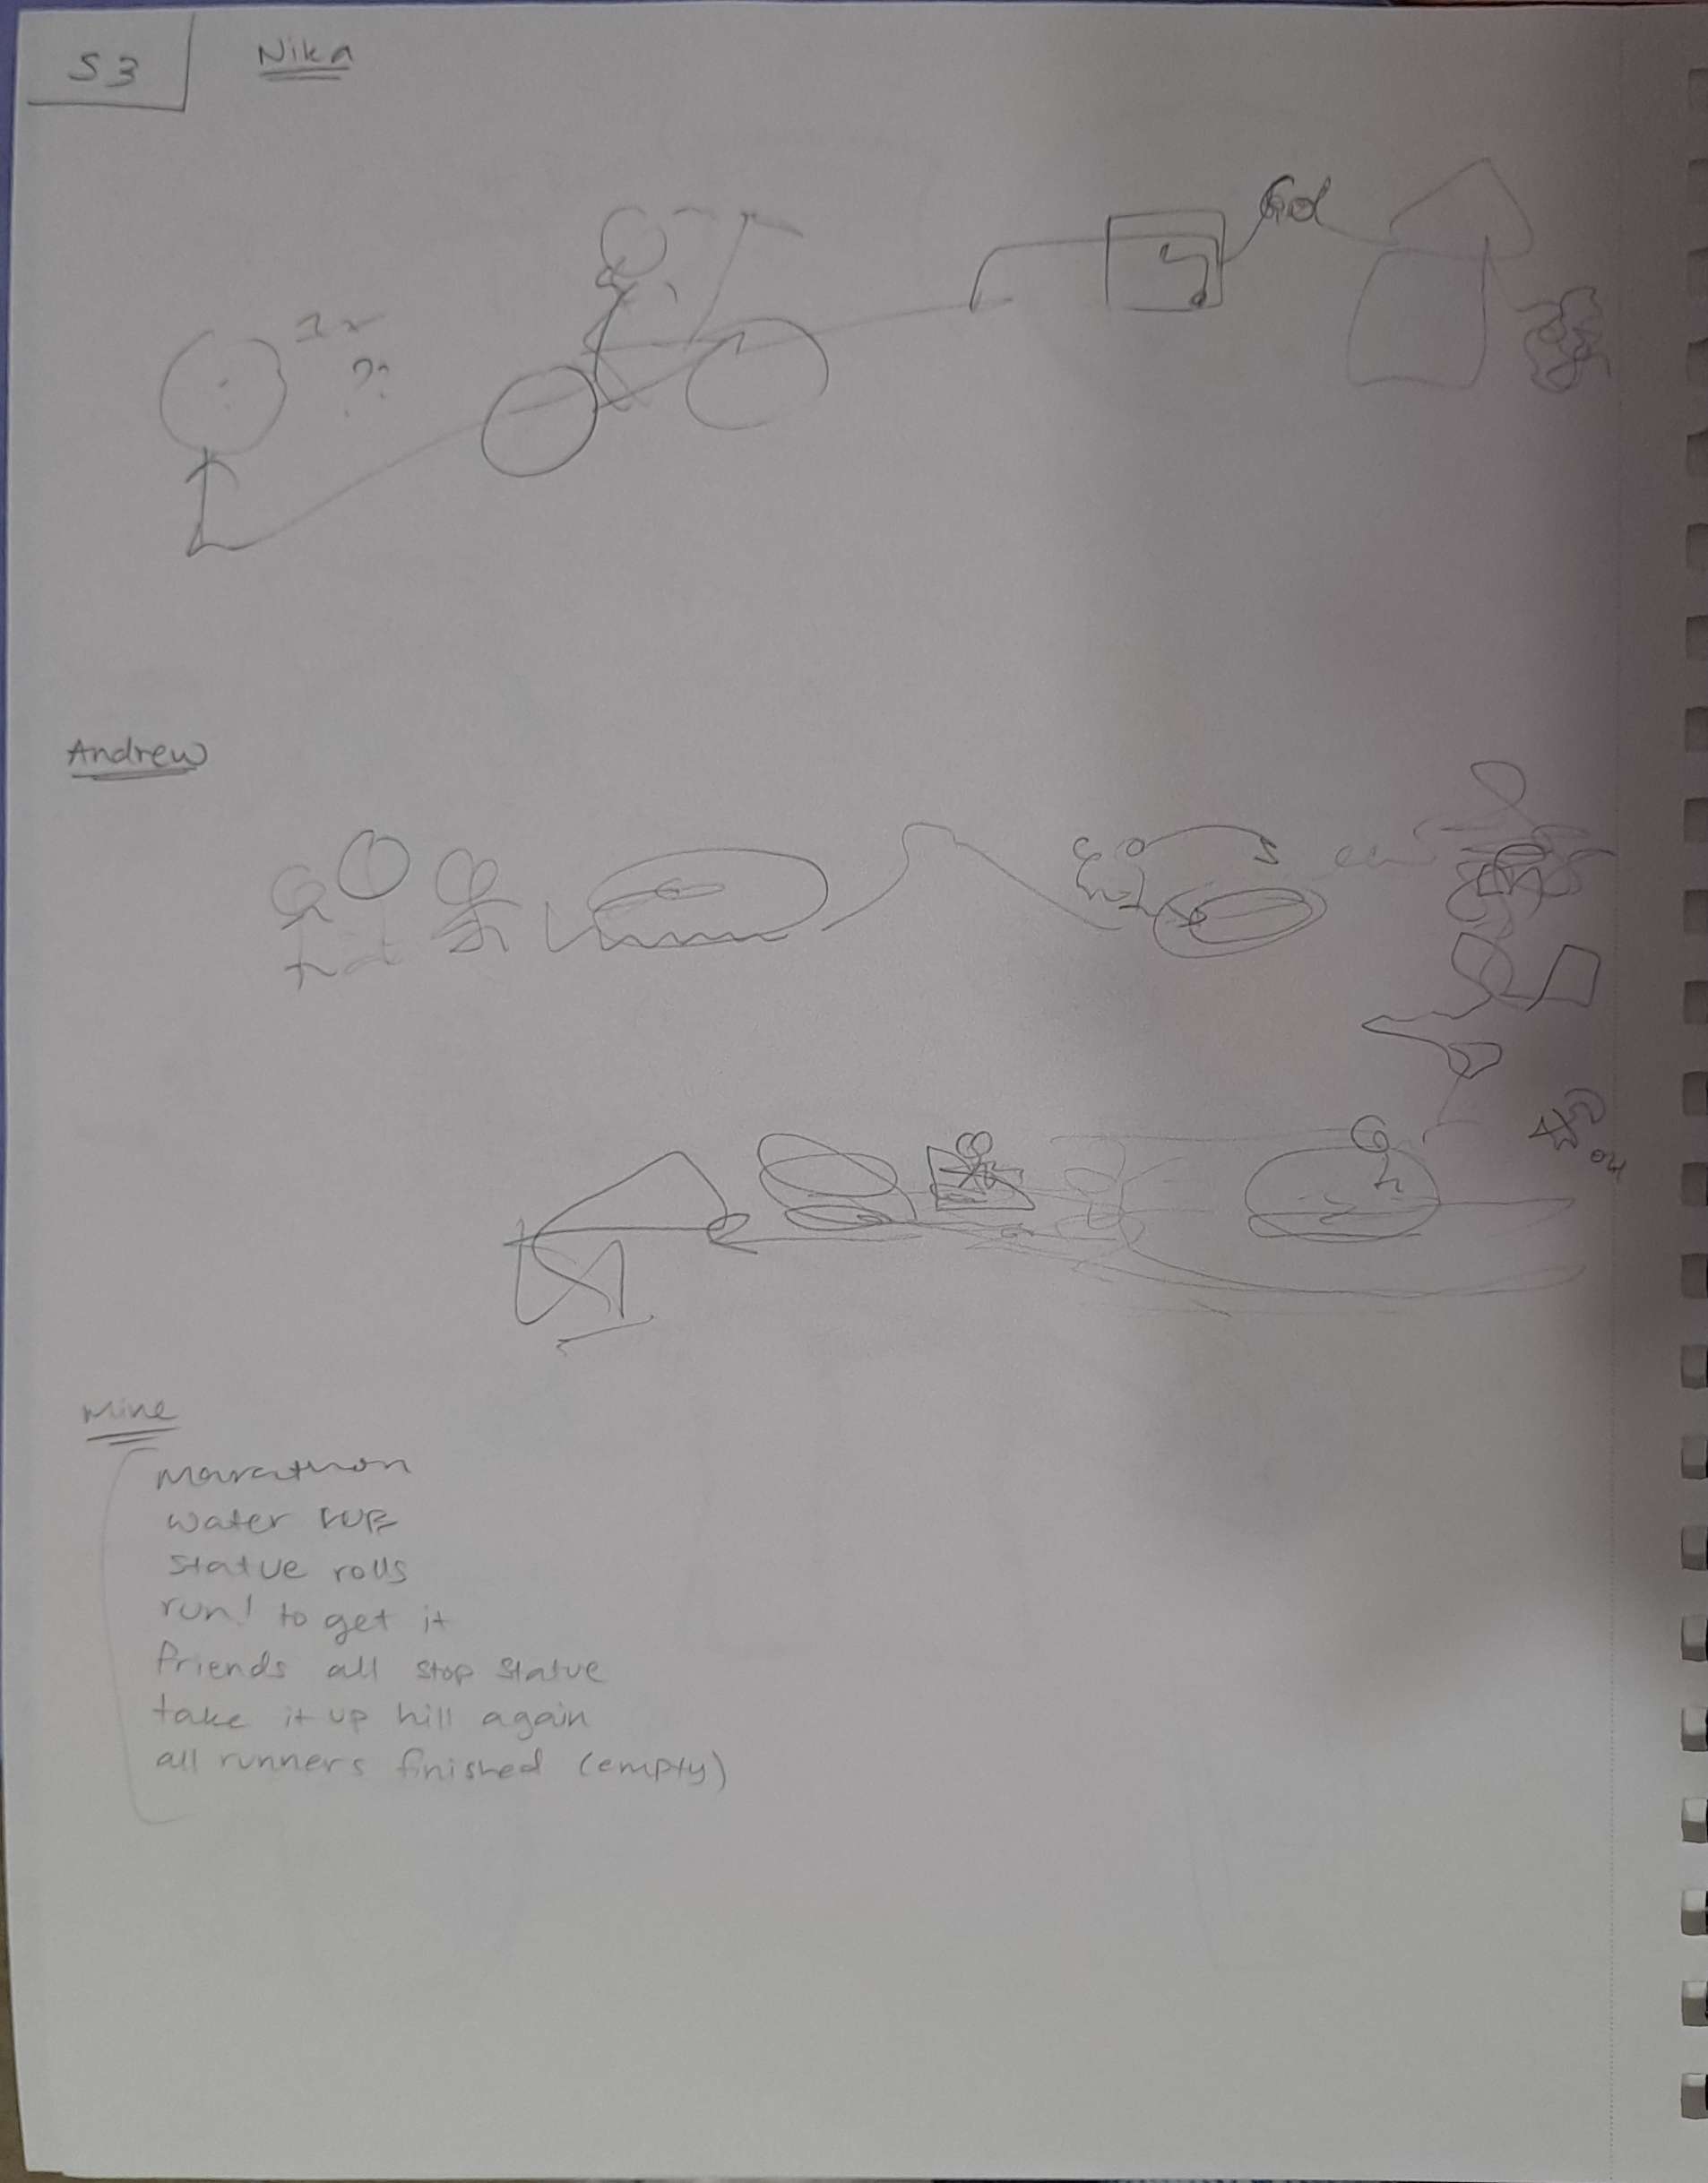 S3
Nika
??
Andrew
Mine
Marathon
water
statue rolls
run! to get it
friends all stop statue
take it up hill again
all runners finished (empty)